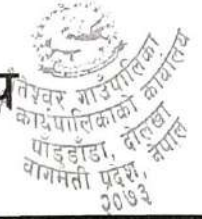 तेश्वर गाउँपालिका
कार्यपालिकाको कार्यालय
पाइडाँडा, दोलखा
वागमती प्रदेश, नेपाल
२०७३